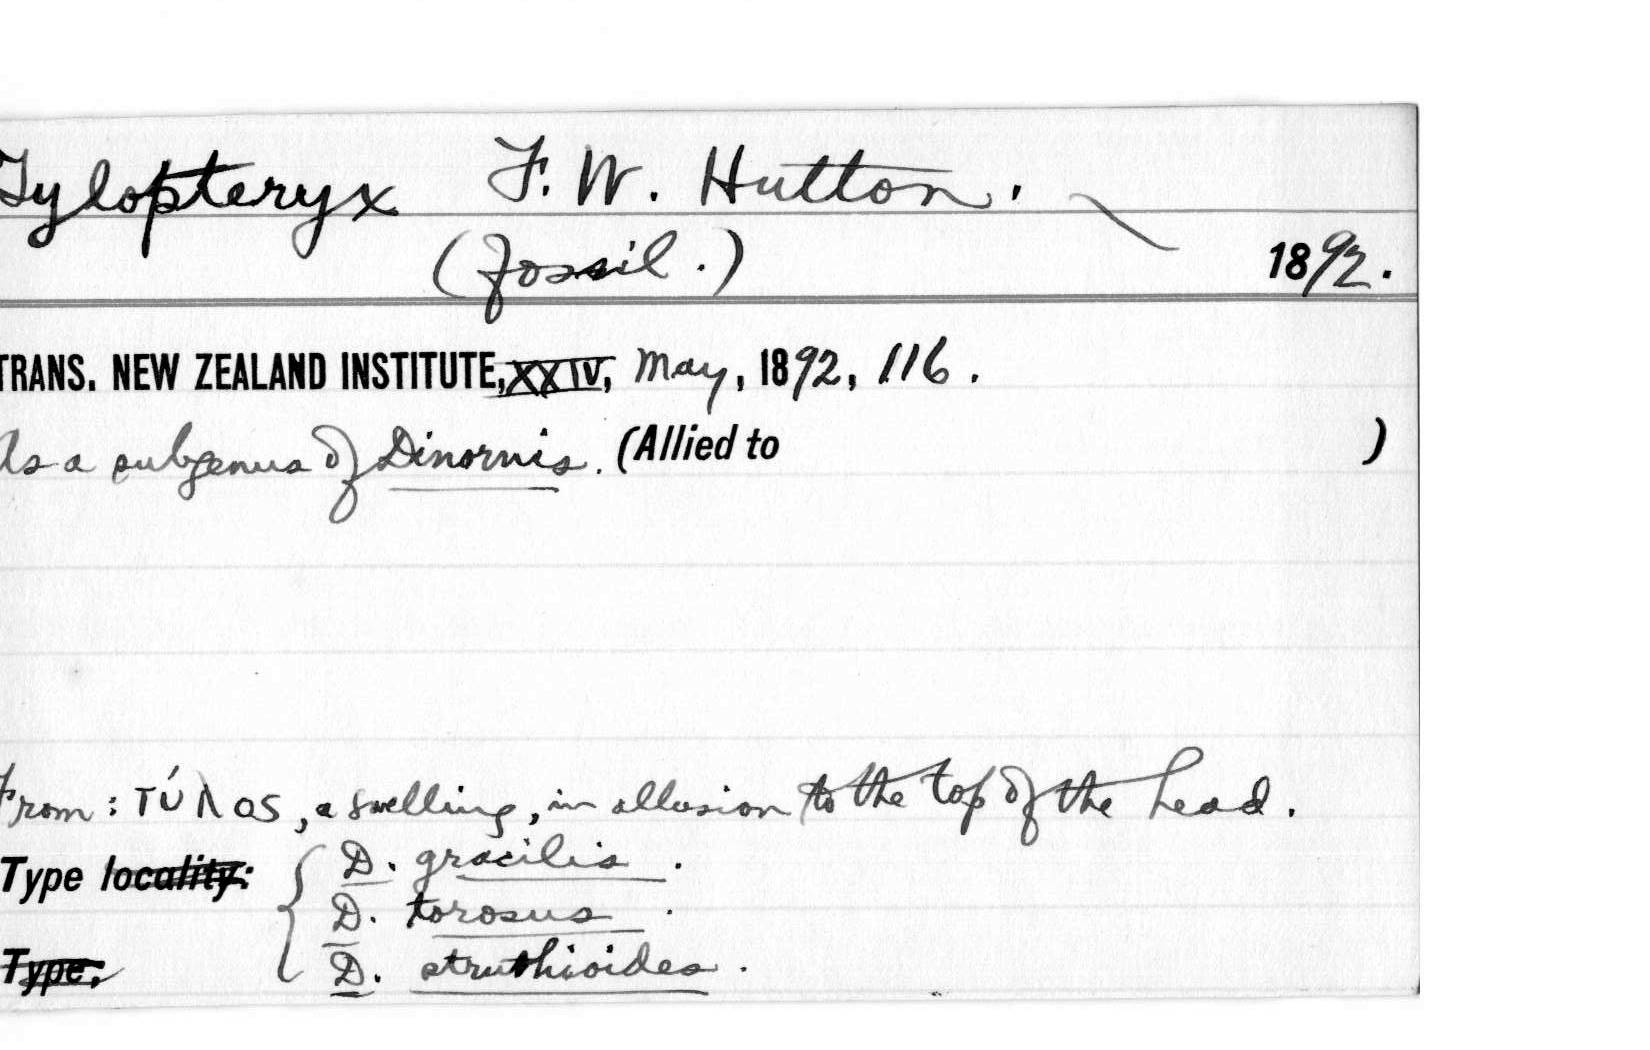 Tylopteryx F. W. Hutton.
(fossil.) 1892.
TRANS. NEW ZEALAND INSTITUTE, XXIV, May, 1892, 116.
As a subgenus of Dinornis. (Allied to )
From: τύλος, a swelling, in allusion to the top of the head.
Type locality: { D. gracilis.
D. torosus.
Type: D. struthioides.